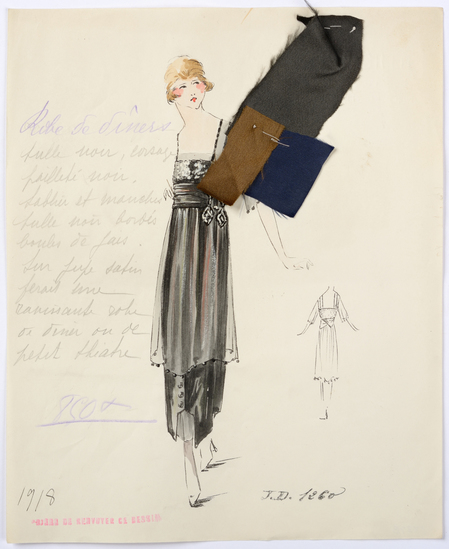 Robe de dîners
tulle noir, corsage
pailleté noir.
tablier et manches
tulle noir bordés
boules de jais.
Sur jupe satin
ferait une
ravissante robe
de dîner ou de
petit théâtre
1918
J.D. 1260